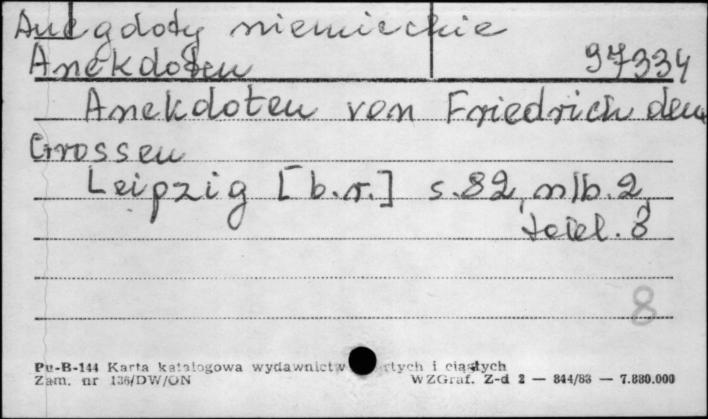 Anegdoty niemieckie
Anekdoten 97334
Anekdoten von Friedrich dem
Grossen
Leipzig [b.r.] s.82, nlb.2,
8
Pu-B-144 Karta katalogowa wydawnictw rtych i ciągłych
Zam. nr 136/DW/ON WZGraf. Z-d 2 — 844/83 — 7.880.000